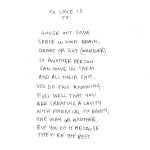 TO LOVE IS
TO:
GOUGE OUT SOME
SPACE IN YOUR BRAIN,
HEART OR GUT (WHATEVER)
SO ANOTHER PERSON
CAN MOVE IN THEM
AND ALL THEIR SHIT.
YOU DO THIS KNOWING
FULL WELL THAT YOU
ARE CREATING A CAVITY
WITH POTENTIAL TO EMPTY,
ONE WAY OR ANOTHER.
BUT YOU DO IT BECAUSE
THEY'RE THE BEST.